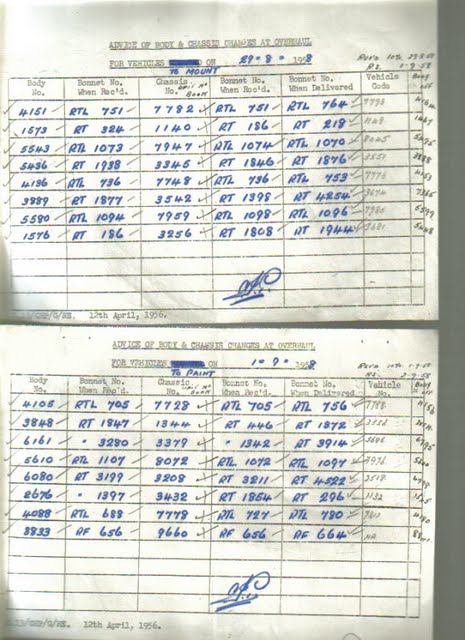 ADVICE OF BODY & CHASSIS CHANGES AT OVERHAUL
FOR VEHICLES ON 29 · 8 · 1958
TO MOUNT
Body No. Bonnet No. When Rec'd. Chassis No. Bonnet No. When Rec'd. Bonnet No. When Delivered Vehicle Code Body off
4151 RTL 751 7782 RTL 751 RTL 764 7798
1573 RT 324 1140 RT 186 RT 218
5543 RTL 1073 7947 RTL 1074 RTL 1070
5436 RT 1938 3345 RT 1846 RT 1876 3551
4136 RTL 736 7748 RTL 736 RTL 753 7776
3889 RT 1877 3542 RT 1398 RT 4254 3674
5580 RTL 1094 7959 RTL 1098 RTL 1096
1576 RT 186 3256 RT 1808 RT 1944
12th April, 1956.
ADVICE OF BODY & CHASSIS CHANGES AT OVERHAUL
FOR VEHICLES ON 1 · 9 · 1958
TO PAINT
Body No. Bonnet No. When Rec'd. Chassis No. Bonnet No. When Rec'd. Bonnet No. When Delivered Vehicle No. Body off
4105 RTL 705 7728 RTL 705 RTL 756
3848 RT 1847 1344 RT 446 RT 1872
6161 " 3280 3379 " 1342 RT 3914
5610 RTL 1107 8072 RTL 1072 RTL 1097
6080 RT 3199 3208 RT 3211 RT 4522
2676 " 1397 3432 RT 1854 RT 296 1132
4088 RTL 688 7778 RTL 727 RTL 780
8833 RF 656 9660 RF 656 RF 664 NA
12th April, 1956.